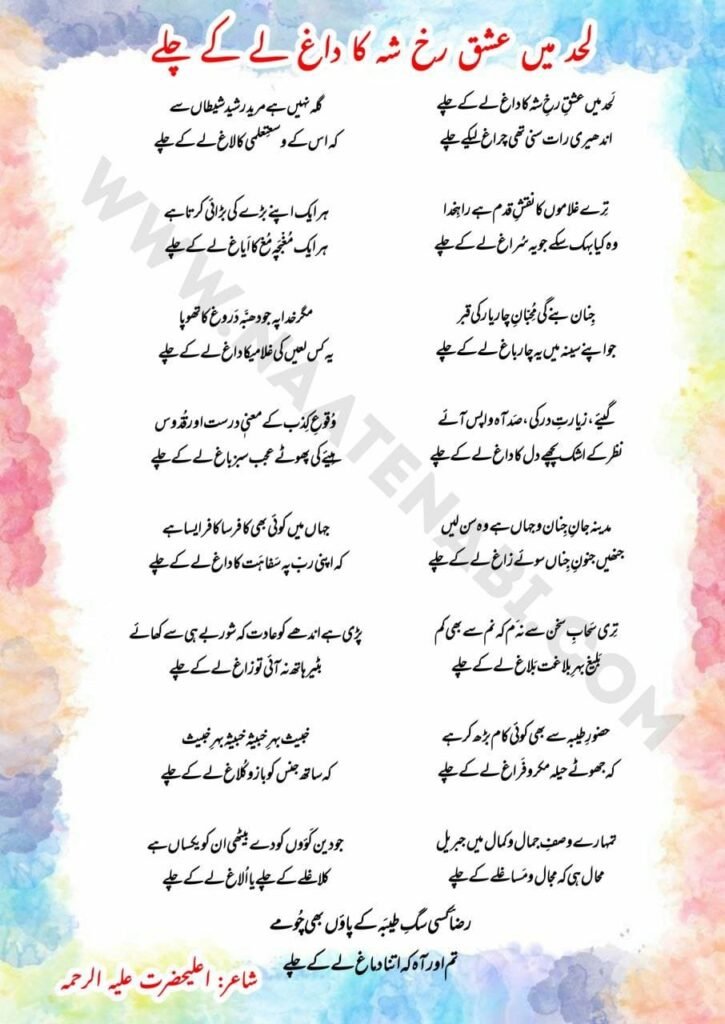 لحد میں عشق رخ شہ کا داغ لے کے چلے
لَحد میں عشقِ رخِ شہ کا داغ لے کے چلے
اندھیری رات سنی تھی چراغ لیکے چلے
تِرے غلاموں کا نقشِ قدم ہے راہِ خدا
وہ کیا بہک سکے جو یہ سُراغ لے کے چلے
جِناں بنے گی مُحِبّانِ چار یار کی قبر
جو اپنے سینہ میں یہ چار باغ لے کے چلے
گیئے، زیارتِ در کی، صَد آہ واپس آئے
نظر کے اشک پچھے دل کا داغ لے کے چلے
مدینہ جانِ جِناں و جہاں ہے وہ سن لیں
جنھیں جنونِ جِناں سوئے زاغ لے کے چلے
تِری سَحابِ سخن سے نہ نَم کہ نم سے بھی کم
بَلیغ بہرِ بلاغت بَلاغ لے کے چلے
حضورِ طیبہ سے بھی کوئی کام بڑھ کر ہے
کہ جھوٹے حیلہ مکر و فَراغ لے کے چلے
تمہارے وصفِ جمال و کمال میں جبریل
محال ہی کہ مجال و مَساغ لے کے چلے
گلہ نہیں ہے مرید رشید شیطاں سے
کہ اس کے وسعتِ علمی کا لاغ لے کے چلے
ہر ایک اپنے بڑے کی بڑائی کرتا ہے
ہر ایک مُغبَچہ مُغ کا اَیاغ لے کے چلے
مگر خدا پہ جو دھبّہ دَروغ کا تھوپا
یہ کس لعیں کی غلامیکا داغ لے کے چلے
وُقوعِ کِذب کے معنیٰ درست اور قُدّوس
ہیئے کی پھوٹے عجب سبز باغ لے کے چلے
جہاں میں کوئی بھی کافر سا کافر ایسا ہے
کہ اپنی ربّ پہ سَفاہَت کا داغ لے کے چلے
پڑی ہے اندھے کو عادت کہ شوربے ہی سے کھائے
بٹیر ہاتھ نہ آئی تو زاغ لے کے چلے
خبیث بہرِ خبیثہ خبیثہ بہرِ خبیث
کہ ساتھ جنس کو بازو کُلاغ لے کے چلے
جو دین کَوّوں کو دے بیٹھی ان کو یکساں ہے
کلاغ لے کے چلے یا اُلاغ لے کے چلے
رضاؔ کسی سگِ طیبہ کے پاؤں بھی چُومے
تم اور آہ کہ اتنا دماغ لے کے چلے
شاعر: اعلیحضرت علیہ الرحمہ
WWW.NAATENABI.COM